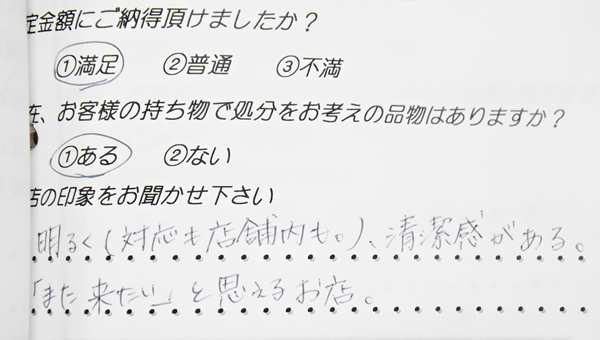 定金額にご納得頂けましたか？
①満足 ②普通 ③不満
在、お客様の持ち物で処分をお考えの品物はありますか？
①ある ②ない
店の印象をお聞かせ下さい
明るく(対応も店舗内も。)、清潔感がある。
「また来たい」と思えるお店。